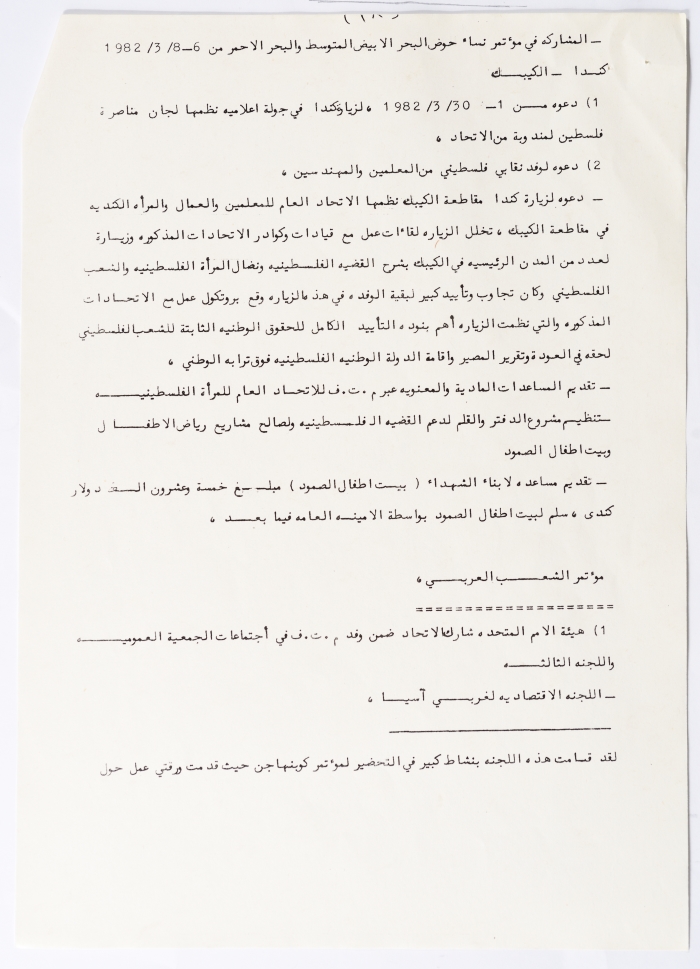 (١٨)
ـ المشاركه في مؤتمر نساء حوض البحر الابيض المتوسط والبحر الاحمر من 6ـ8/ 3/ 1982
كندا ـ الكيبـــك
1) دعوه مـــن 1ـ 30/ 3/ 1982 ، لزيارةكندا في جولة اعلاميه نظمها لجان مناصرة
فلسطين لمندوبة من الاتحاد ،
2) دعوه لوفد نقابي فلسطيني من المعلمين والمهندسين ،
ـ دعوه لزيارة كندا مقاطعة الكيبك نظمها الاتحاد العام للمعلمين والعمال والمرأه الكنديه
في مقاطعة الكيبك ، تخلل الزياره لقاءات عمل مع قيادات وكوادر الاتحادات المذكوره وزيــارة
لعدد من المدن الرئيسيه في الكيبك بشرح القضيه الفلسطينيه ونضال المرأة الفلسطينيه والشعب
الفلسطيني وكان تجاوب وتأييد كبير لبقية الوفده في هذه الزياره وقع بروتكول عمل مع الاتحــادات
المذكوره والتي نظمت الزياره أهم بنوده التأييد الكامل للحقوق الوطنيه الثابتة للشعب الفلسطيني
لحقه في العودة وتقرير المصير واقامة الدولة الوطنيه الفلسطينيه فوق ترابه الوطني ،
ـ تقديم المساعدات المادية والمعنويه عبر م .ت.ف للاتحاد العام للمرأة الفلسطينيـــــه
ـ تنظيم مشروع الدفتر والقلم لدعم القضيه الفلسطينيه ولصالح مشاريع رياض الاطفـــال
وبيت اطفال الصمود
ـ تقديم مساعده لابناء الشهداء ( بيــت اطفال الصمود ) مبلــغ خمسة وعشرون الــف دولار
كندى ، سلم لبيت اطفال الصمود بواسطة الامينــه العامه فيما بعـــد ،
مؤتمر الشعـــب العربـــي ،
====================
1) هيئة الامم المتحده شارك الاتحاد ضمن وفد م .ت.ف في أجتماعات الجمعية العموميـــــه
واللجنه الثالثـــه
ـ اللجنه الاقتصاديه لغربـــي آسيــا ،
لقد قسامت هذه اللجنه بنشاط كبير في التحضير لمؤتمر كوبنهاجن حيث قدمت ورقتي عمل حول